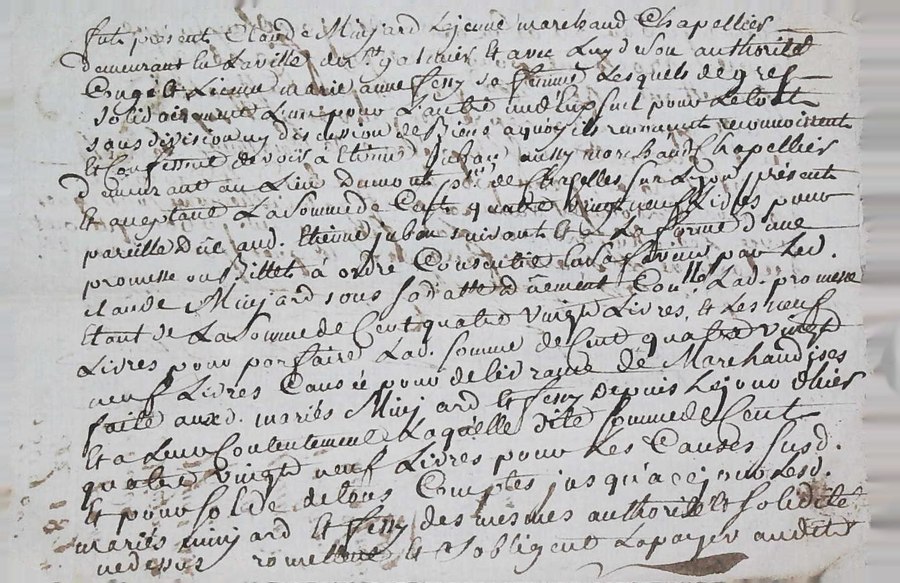 fut présent Claude Minjard Lejeune marchand Chapellier
demeurant en La ville de St galmier Et avec Luy de Son authorité
Congé Et Licence marie anne ferry sa femme Lesquels de gref
solidairement L'une pour L'autre un d'Eux seul pour Letout
sans division ny discussion de Biens a quoy ils renoncent reconnoissent
Et Confessent devoir à Etienne Juban aussy marchand Chapellier
demeurant au Lieu Dumont psse de Chazelles sur Lyon présent
Et aceptant La Somme de Cent quatre vingt neuf Livres pour
pareille Düe aud. Etienne juban suivant Et a La forme d'une
promesse ou Billet a ordre Consentie En sa faveur par Led.
claude Minjard sous sa datte dûement Conllée Lad. promesse
Etant de La Somme de Cent quatre vingt Livres, Et Les neuf
Livres pour parfaire Lad. somme de Cent quatre vingt
neuf Livres Causée pour delivrance de Marchandises
faite auxd. mariés Minjard Et ferry depuis Lejour d'hier
Et a Leur Contentement Laquelle dite Somme de Cent
quatre vingt neuf Livres pour Les Causes susd.
Et pour solde de tous Comptes jusqu'a ce jour Lesd.
mariés minjard Et ferry des mesmes authorité Et solidité
que dessus promettent Et s'obligent La payer audit